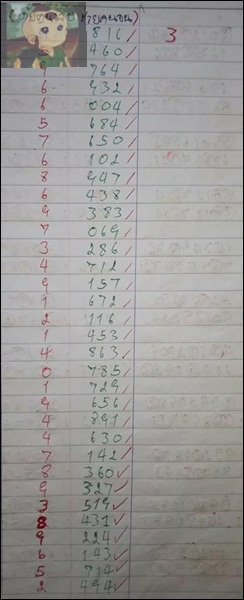 816 3
460
764
6 932
6 004
5 684
7 650
6 102
8 947
6 438
9 383
7 069
3 286
4 712
9 157
1 672
2 116
1 453
4 863
0 785
1 729
9 656
4 891
4 630
7 142
8 360
9 327
3 519
8 431
9 224
6 143
5
2 494